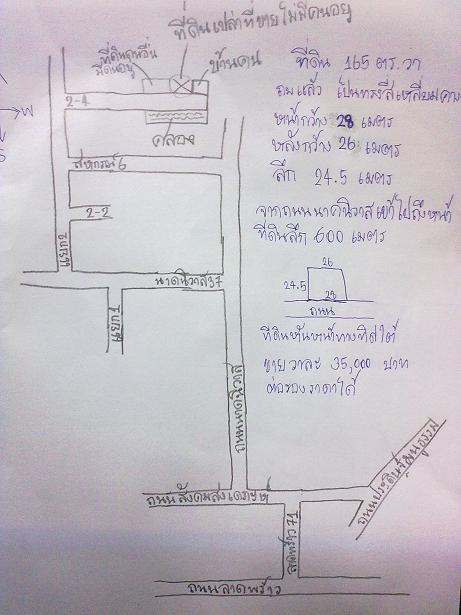 ที่ดินเปล่าที่ขายไม่มีคนอยู่
ที่ดินคนอื่น
มีคนอยู่
บ้านคน
2-4
คลอง
W
S
สหกรณ์6
2-2
แยก2
นาคนิวาส37
แยก1
ถนนนาคนิวาส
ถนนสังคมสงเคราะห์
ลาดพร้าว71
ถนนประดิษฐ์มนูธรรม
ถนนลาดพร้าว
ที่ดิน 165 ตร.วา
ถมแล้ว เป็นทรงสี่เหลี่ยมคางหมู
หน้ากว้าง 28 เมตร
หลังกว้าง 26 เมตร
ลึก 24.5 เมตร
จากถนนนาคนิวาสเข้าไปถึงหน้า
ที่ดินลึก 600 เมตร
26
24.5
28
ถนน
ที่ดินหันหน้าทางทิศใต้
ขายวาละ 35,000 บาท
ต่อรองราคาได้